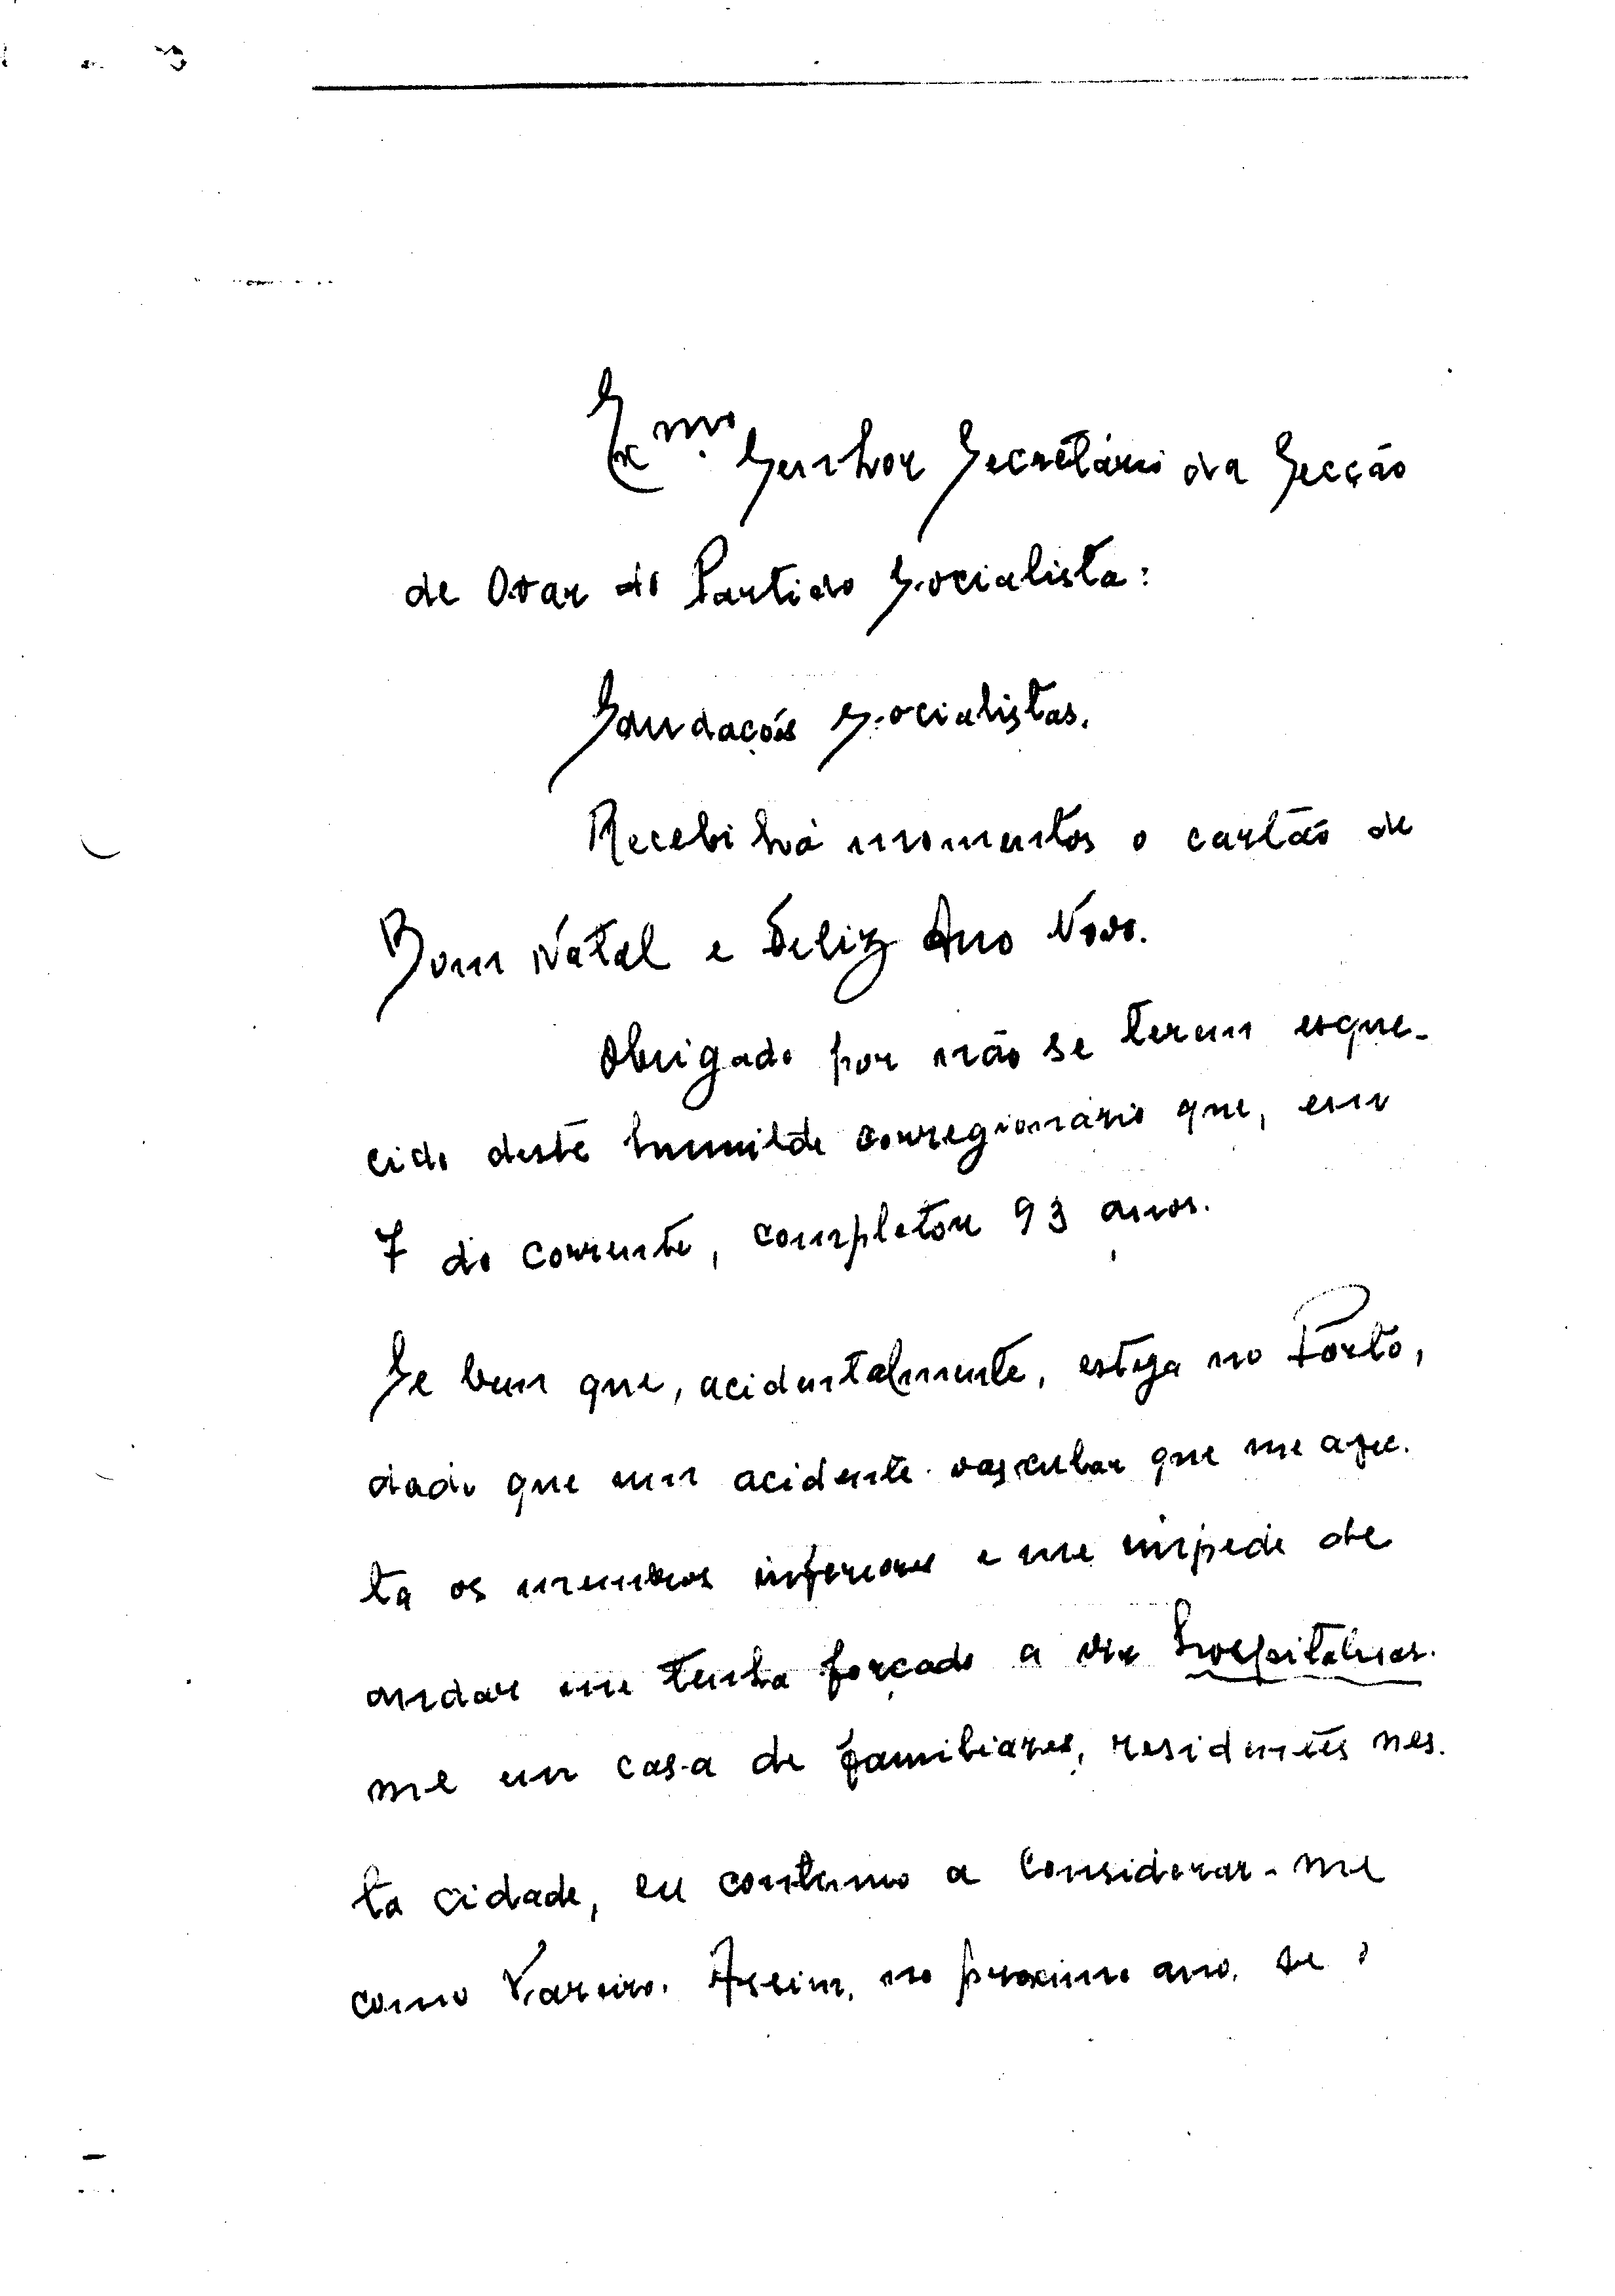 Exmo. Senhor Secretário da Secção
de Ovar do Partido Socialista:
Saudações Socialistas.
Recebi há momentos o cartão de
Bom Natal e Feliz Ano Novo.
Obrigado por não se terem esque-
cido deste humilde corregionário que, em
7 do corrente, completou 93 anos.
Se bem que, acidentalmente, esteja no Porto,
dado que um acidente vascular que me afec-
ta os membros inferiores e me impede de
andar me tenha forçado a vir hospitalizar-
me em casa de familiares, residentes nes-
ta cidade, eu continuo a considerar-me
como Vareiro. Assim, no próximo ano, se